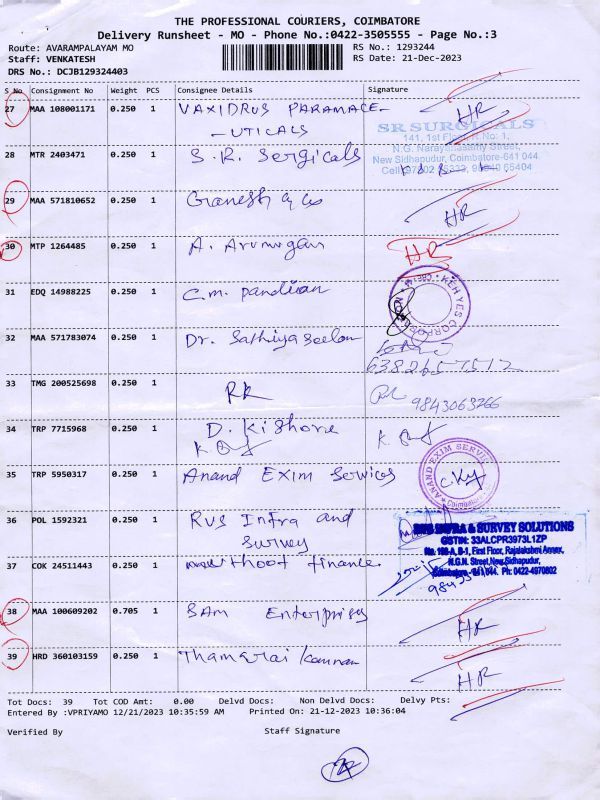 THE PROFESSIONAL COURIERS, COIMBATORE
Delivery Runsheet - MO - Phone No.:0422-3505555 - Page No.:3
Route: AVARAMPALAYAM MO RS No.: 1293244
Staff: VENKATESH RS Date: 21-Dec-2023
DRS No.: DCJB129324403
S No Consignment No Weight PCS Consignee Details Signature
27 MAA 108001171 0.250 1 VAXIDRUS PARAMACE- HR
- UTICALS
SR SURGICALS
141, 1st Floor, No: 1,
28 MTR 2403471 0.250 1 S.R. Sergicals
N.G. Narayanasamy Street,
New Sidhapudur, Coimbatore-641 044.
29 MAA 571810652 0.250 1 Ganesh & Co HR
30 MTP 1264485 0.250 1 A. Arumugan HR
31 EDQ 14988225 0.250 1 C.m. pandian
KEH YES CORPOR
32 MAA 571783074 0.250 1 Dr. Sathiyaseelan
6382657512
33 TMG 200525698 0.250 1 RK
9843063266
34 TRP 7715968 0.250 1 D. Kishore
35 TRP 5950317 0.250 1 Anand EXIM Services
ANAND EXIM SERVICES
Coimbatore
36 POL 1592321 0.250 1 RVS Infra and
Survey
INFRA & SURVEY SOLUTIONS
GSTIN: 33ALCPR3973L1ZP
No. 198-A, B-1, First Floor, Rajalakshmi Annex,
N.G.N. Street, New Sidhapudur,
Coimbatore - 641 044. Ph: 0422-4970802
37 COK 24511443 0.250 1 muthoot finance
38 MAA 100609202 0.705 1 SAM Enterprises HR
39 HRD 360103159 0.250 1 Thamarai kannan HR
Tot Docs: 39 Tot COD Amt: 0.00 Delvd Docs: Non Delvd Docs: Delvy Pts:
Entered By :VPRIYAMO 12/21/2023 10:35:59 AM Printed On: 21-12-2023 10:36:04
Verified By Staff Signature